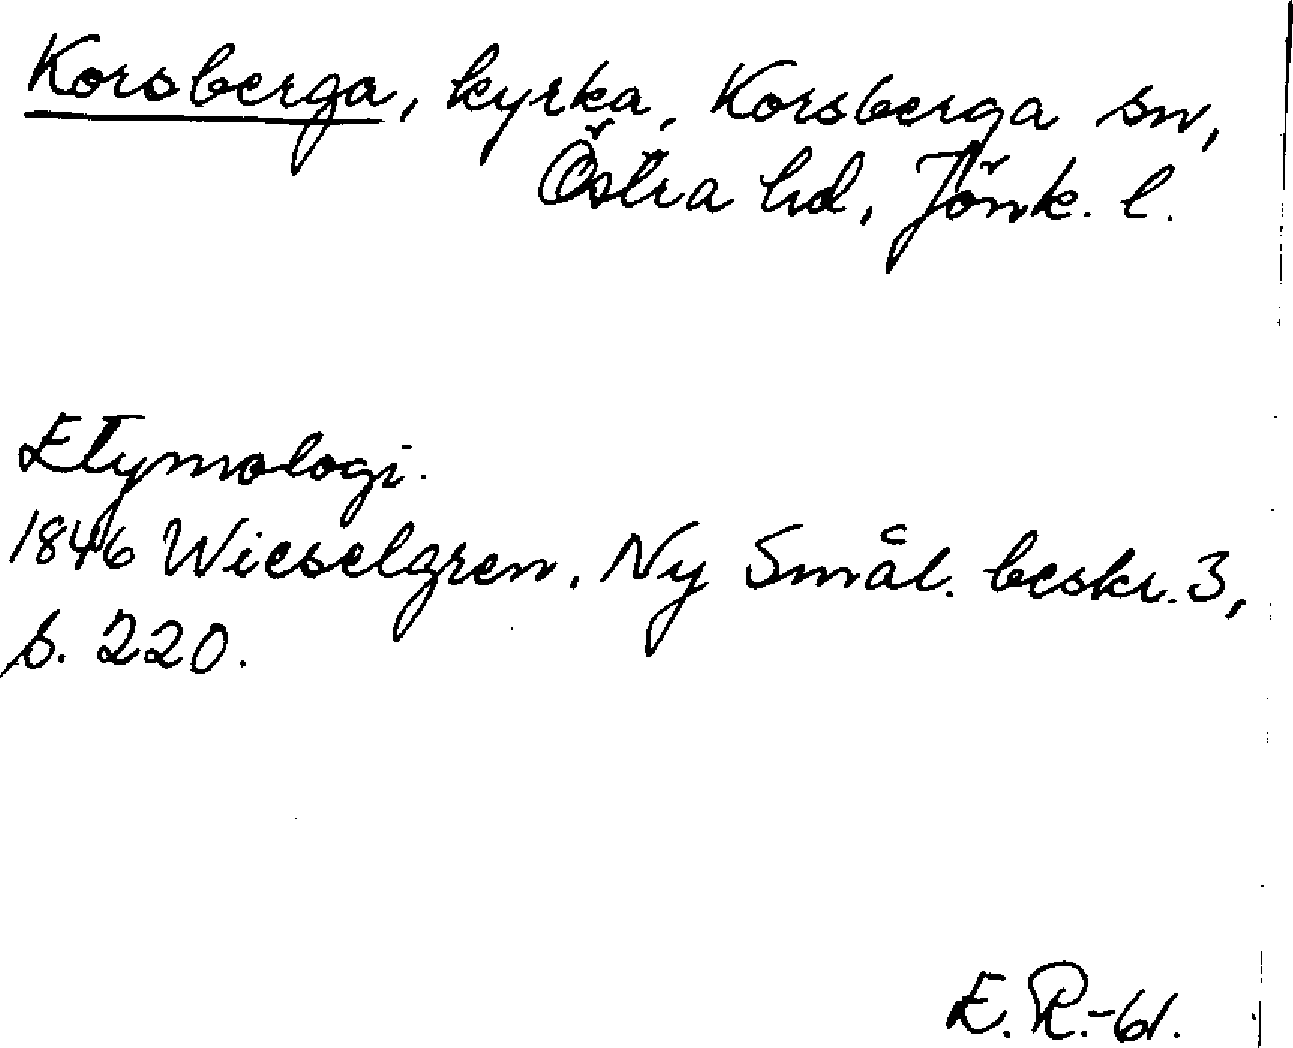 Korsberga, kyrka, Korsberga sn,
Östra hd, Jönk. l.
Etymologi.
1846 Wieselgren. Ny Smål. beskr. 3,
s. 220.
E. R.-61.